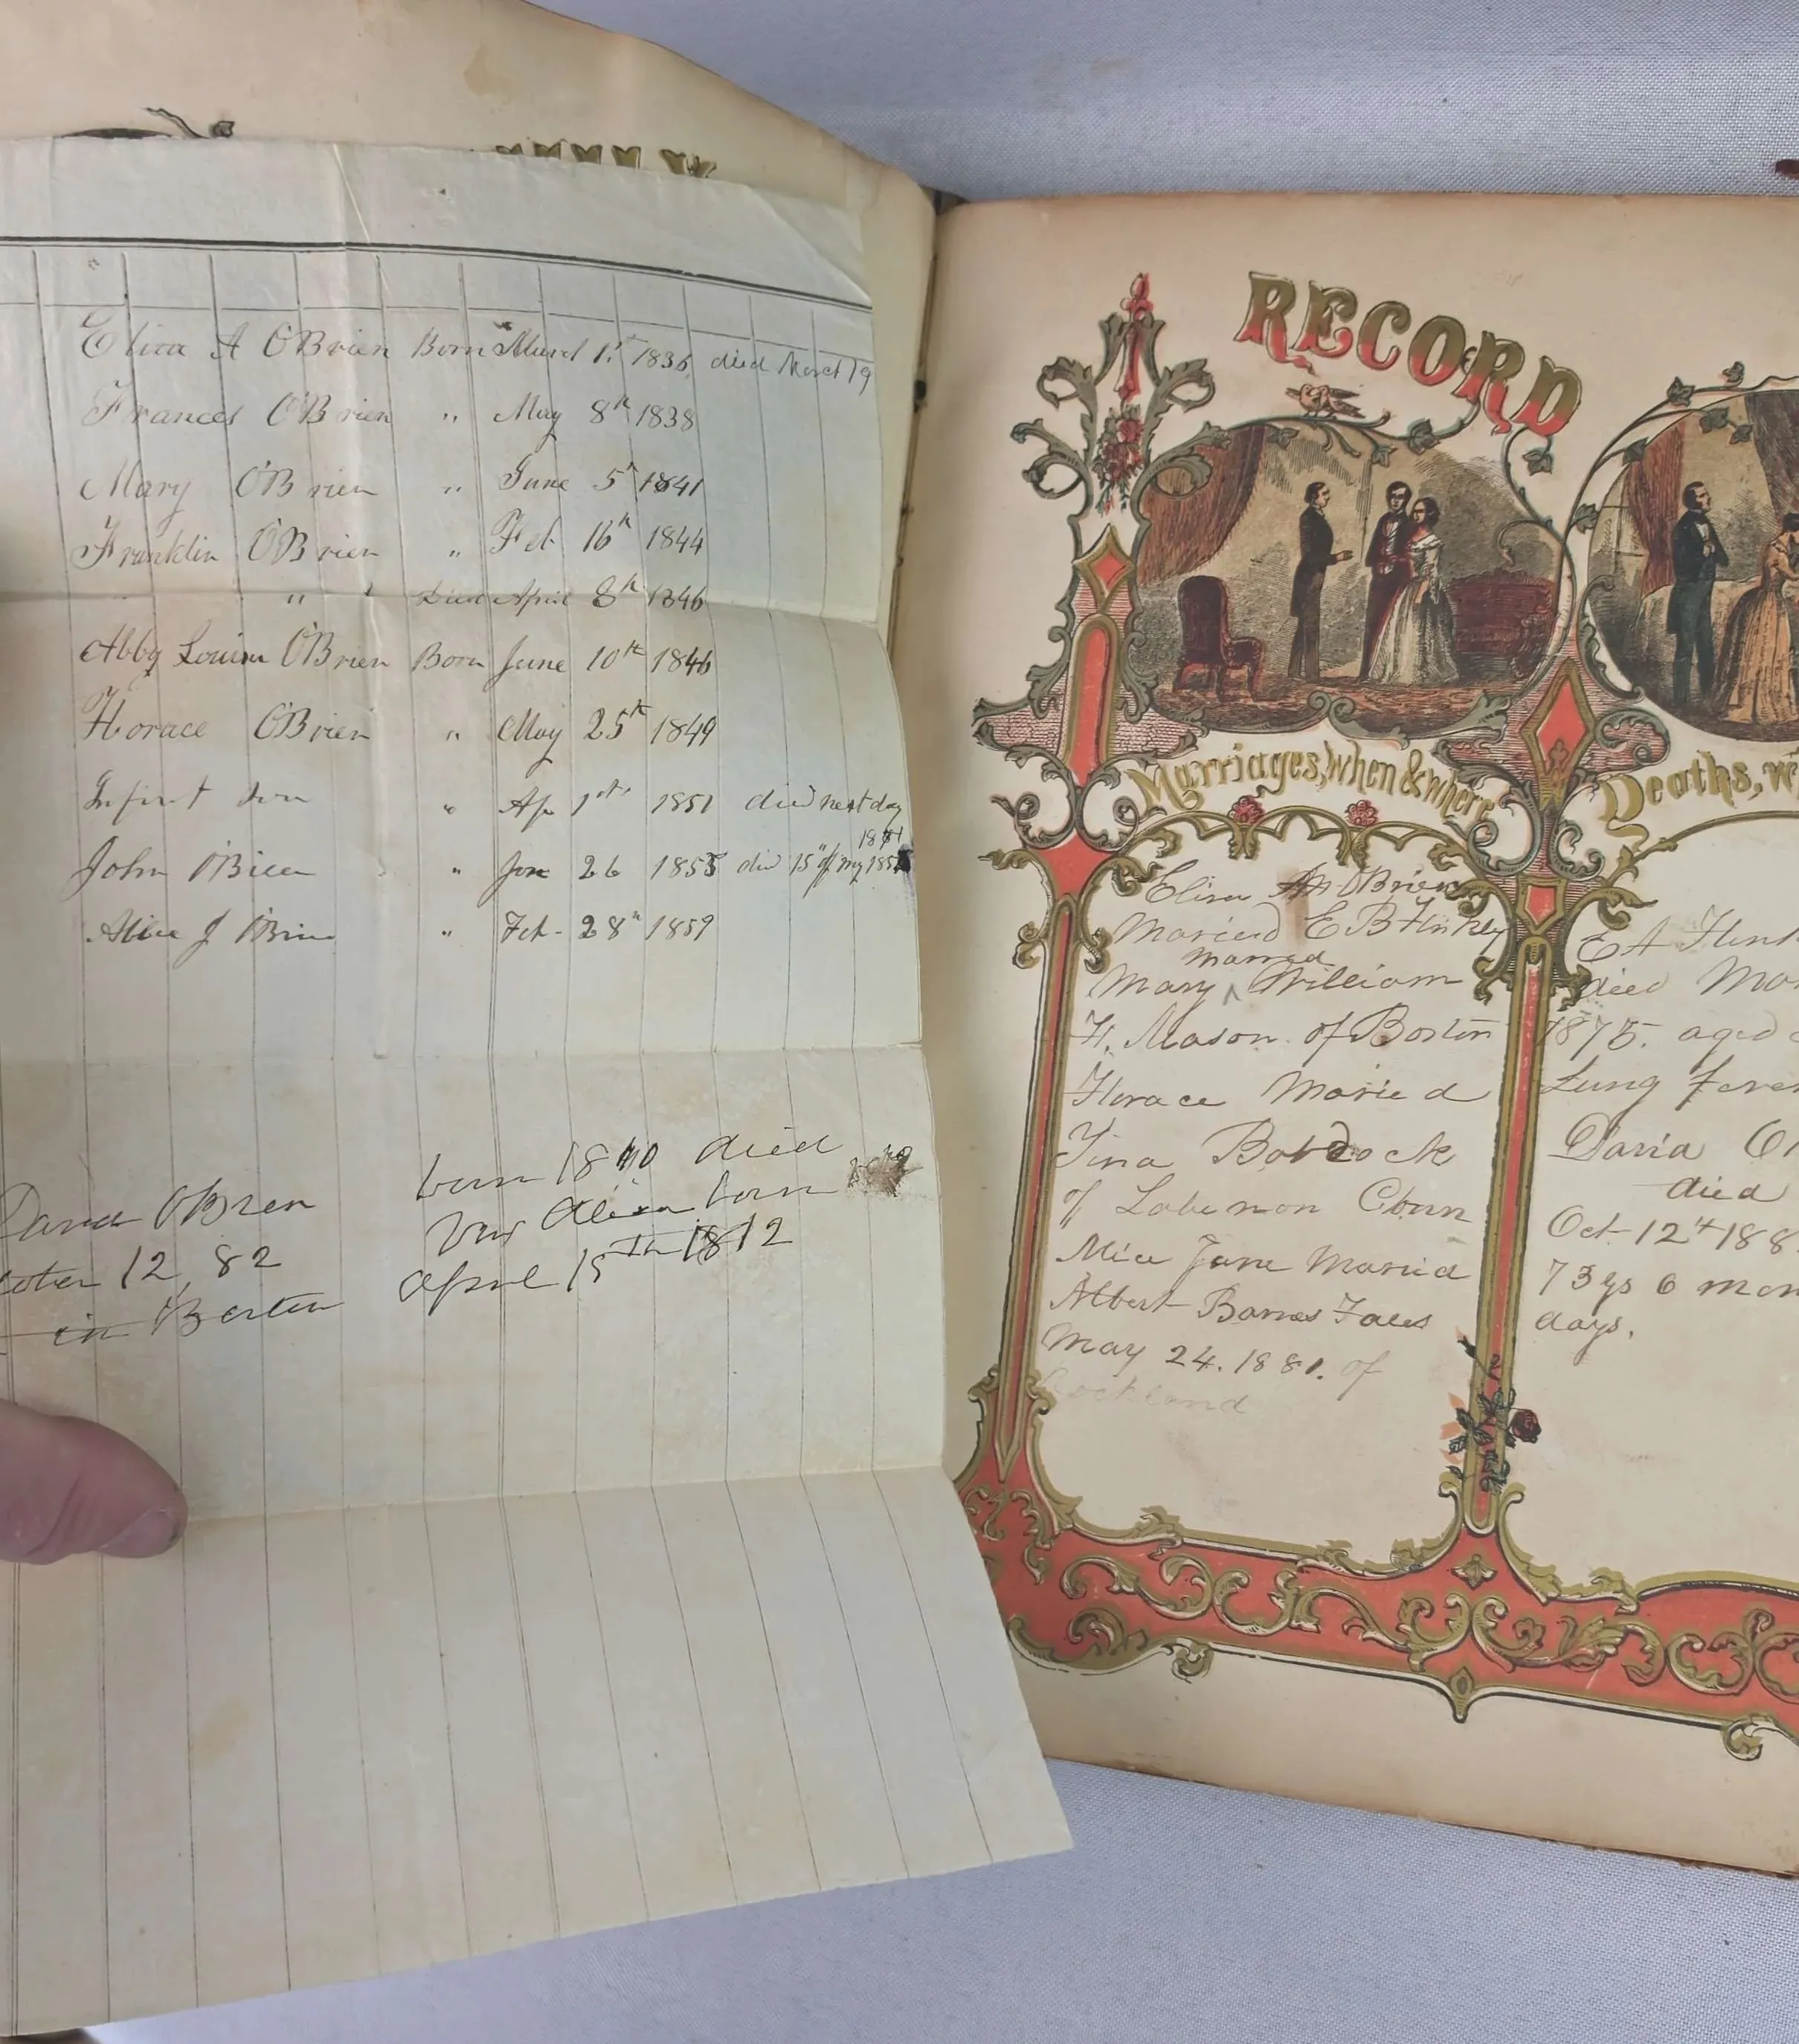 Eliza A O'Brien Born March 1st 1836 died March 19
Frances O'Brien " May 8th 1838
Mary O'Brien " June 5th 1841
Franklin O'Brien " Feb 16th 1844
" Died April 8th 1846
Abby Louisa O'Brien Born June 10th 1846
Horace O'Brien " May 25th 1849
Infint Son " Ap 1st 1851 died next day
John O'Brien " Jan 26 1855 die 15" of my
Alice J O'Brien " Feb - 28th 1859
born 18 died
David O'Brien
born
12, 82
April 15th 1812
in Boston
RECORD
Marriages, when & where
Eliza O'Brien
Maried E B Hinkley
married
Mary ^ William
H. Mason of Boston
Horace Maried
Tina
of Lebenon Conn
Alice Jane Maried
Albert Barnes Fales
May 24. 1881. of
Rockland
Deaths, w
E A Hink
died Ma
1875. aged
Lung fever
David O
died
Oct 12th 188
73 ys 6 mon
days.